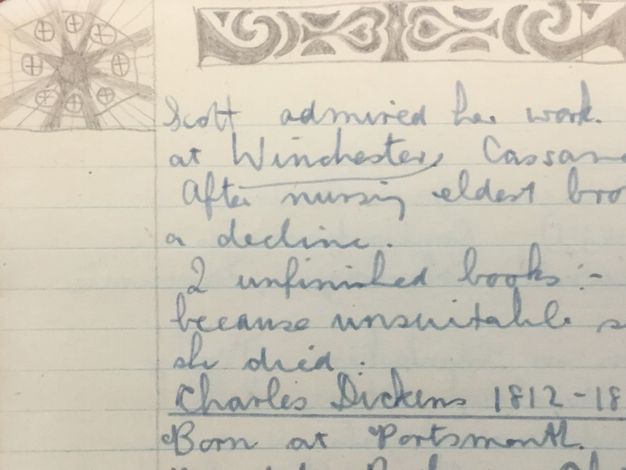 Scott admired her work.
at Winchester, Cassan
After nursing eldest bro
a decline.
2 unfinished books :-
because unsuitable s
she died.
Charles Dickens 1812-18
Born at Portsmouth.